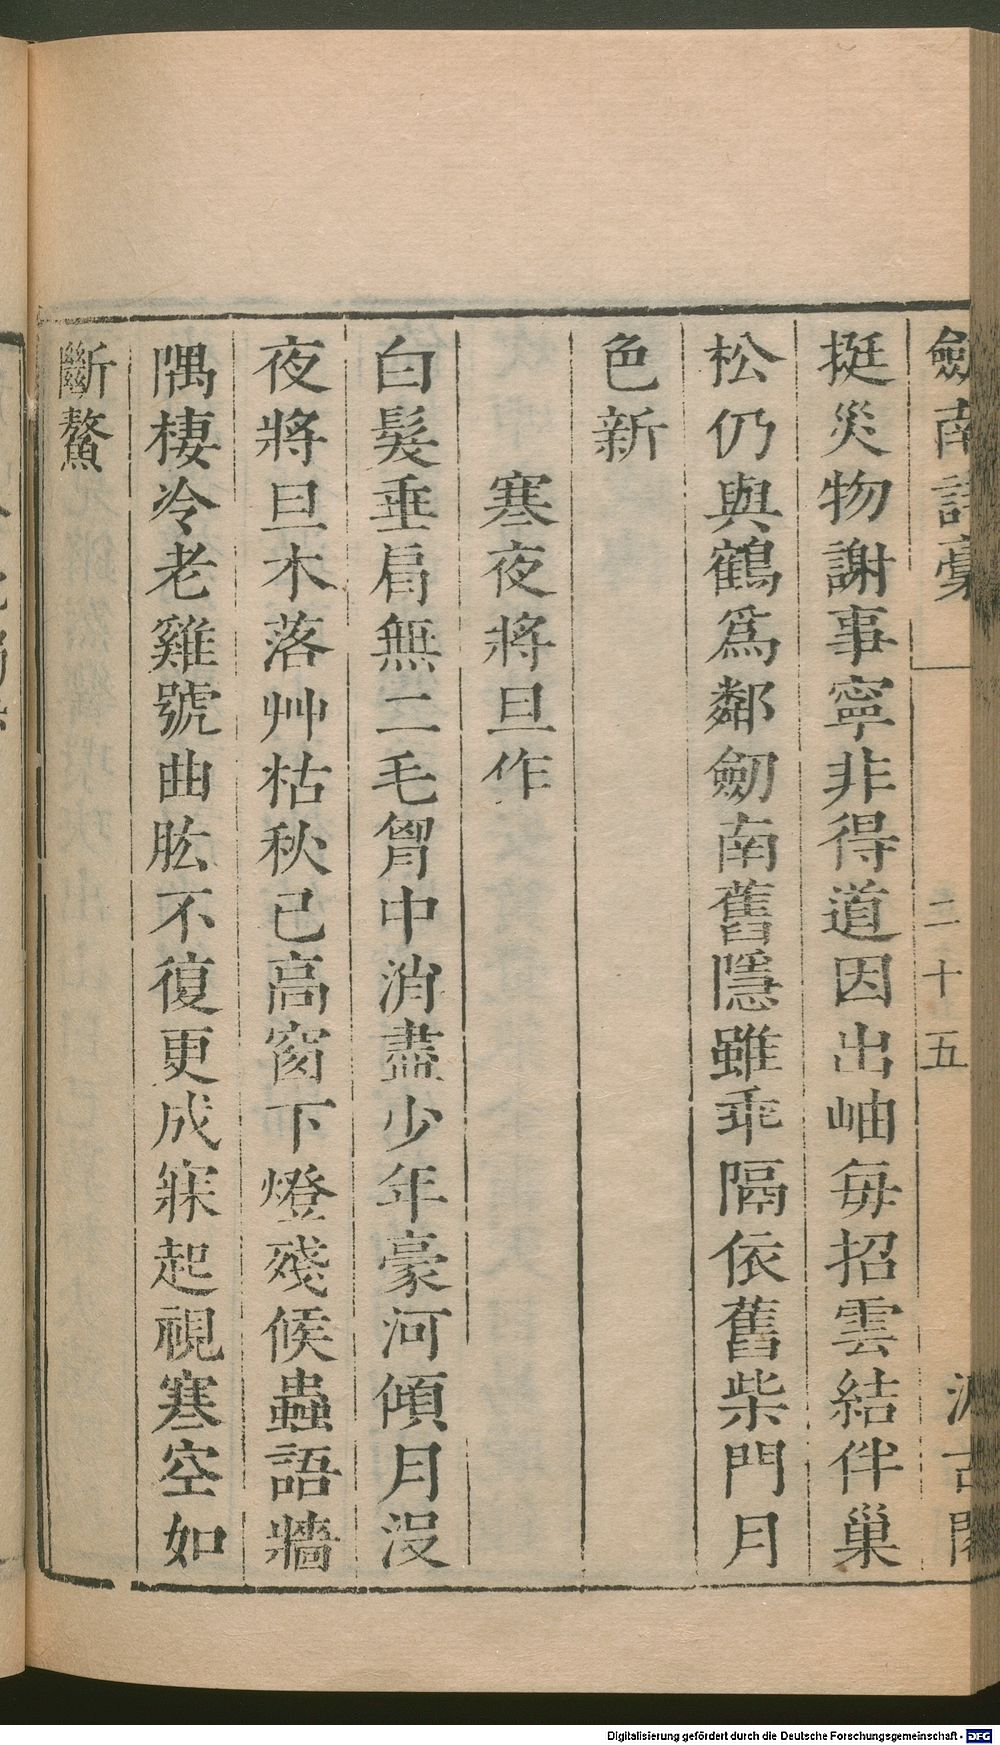 劔南詩稾 二十五 汲古閣
挺災物謝事寧非得道因出岫每招雲結伴巢
松仍與鶴爲鄰劒南舊隱雖乖隔依舊柴門月
色新
寒夜將旦作
白髮垂肩無二毛胷中消盡少年豪河傾月沒
夜將旦木落艸枯秋已高窗下燈殘候蟲語牆
隅棲冷老雞號曲肱不復更成寐起視寒空如
斷鰲
Digitalisierung gefördert durch die Deutsche Forschungsgemeinschaft - DFG